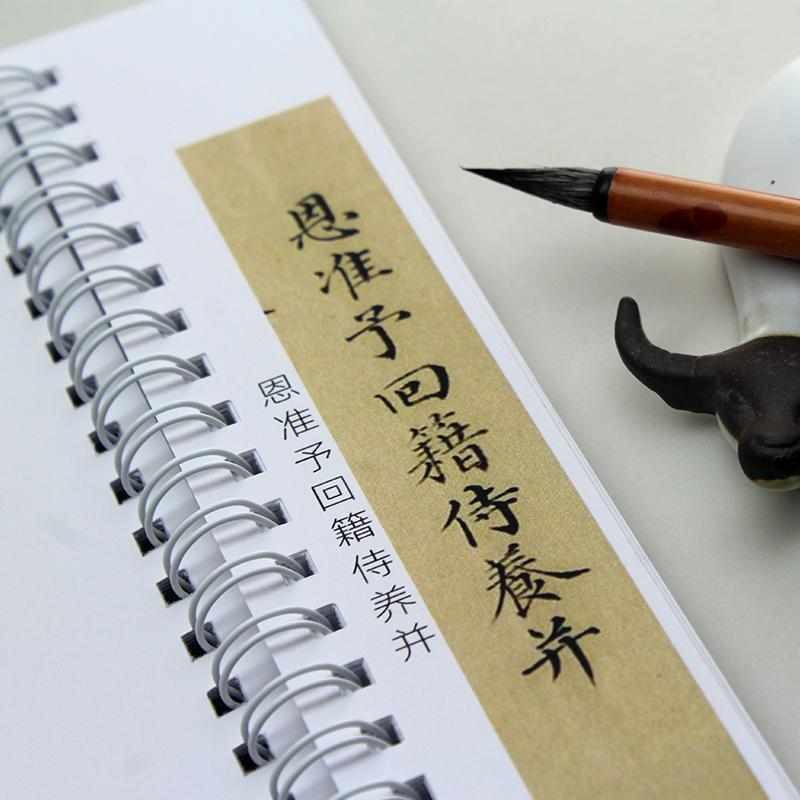 恩准予回籍侍養并
恩准予回籍侍养并